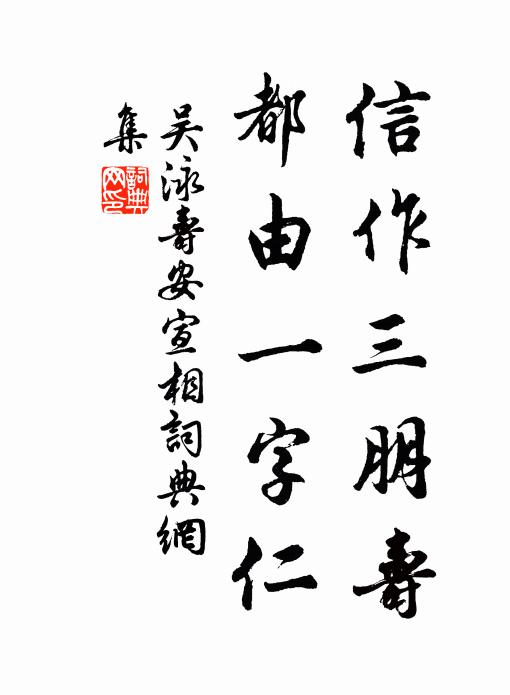 信作三朋壽
都由一字仁
吳泳壽安宣相詞典網
集
詞典
网印